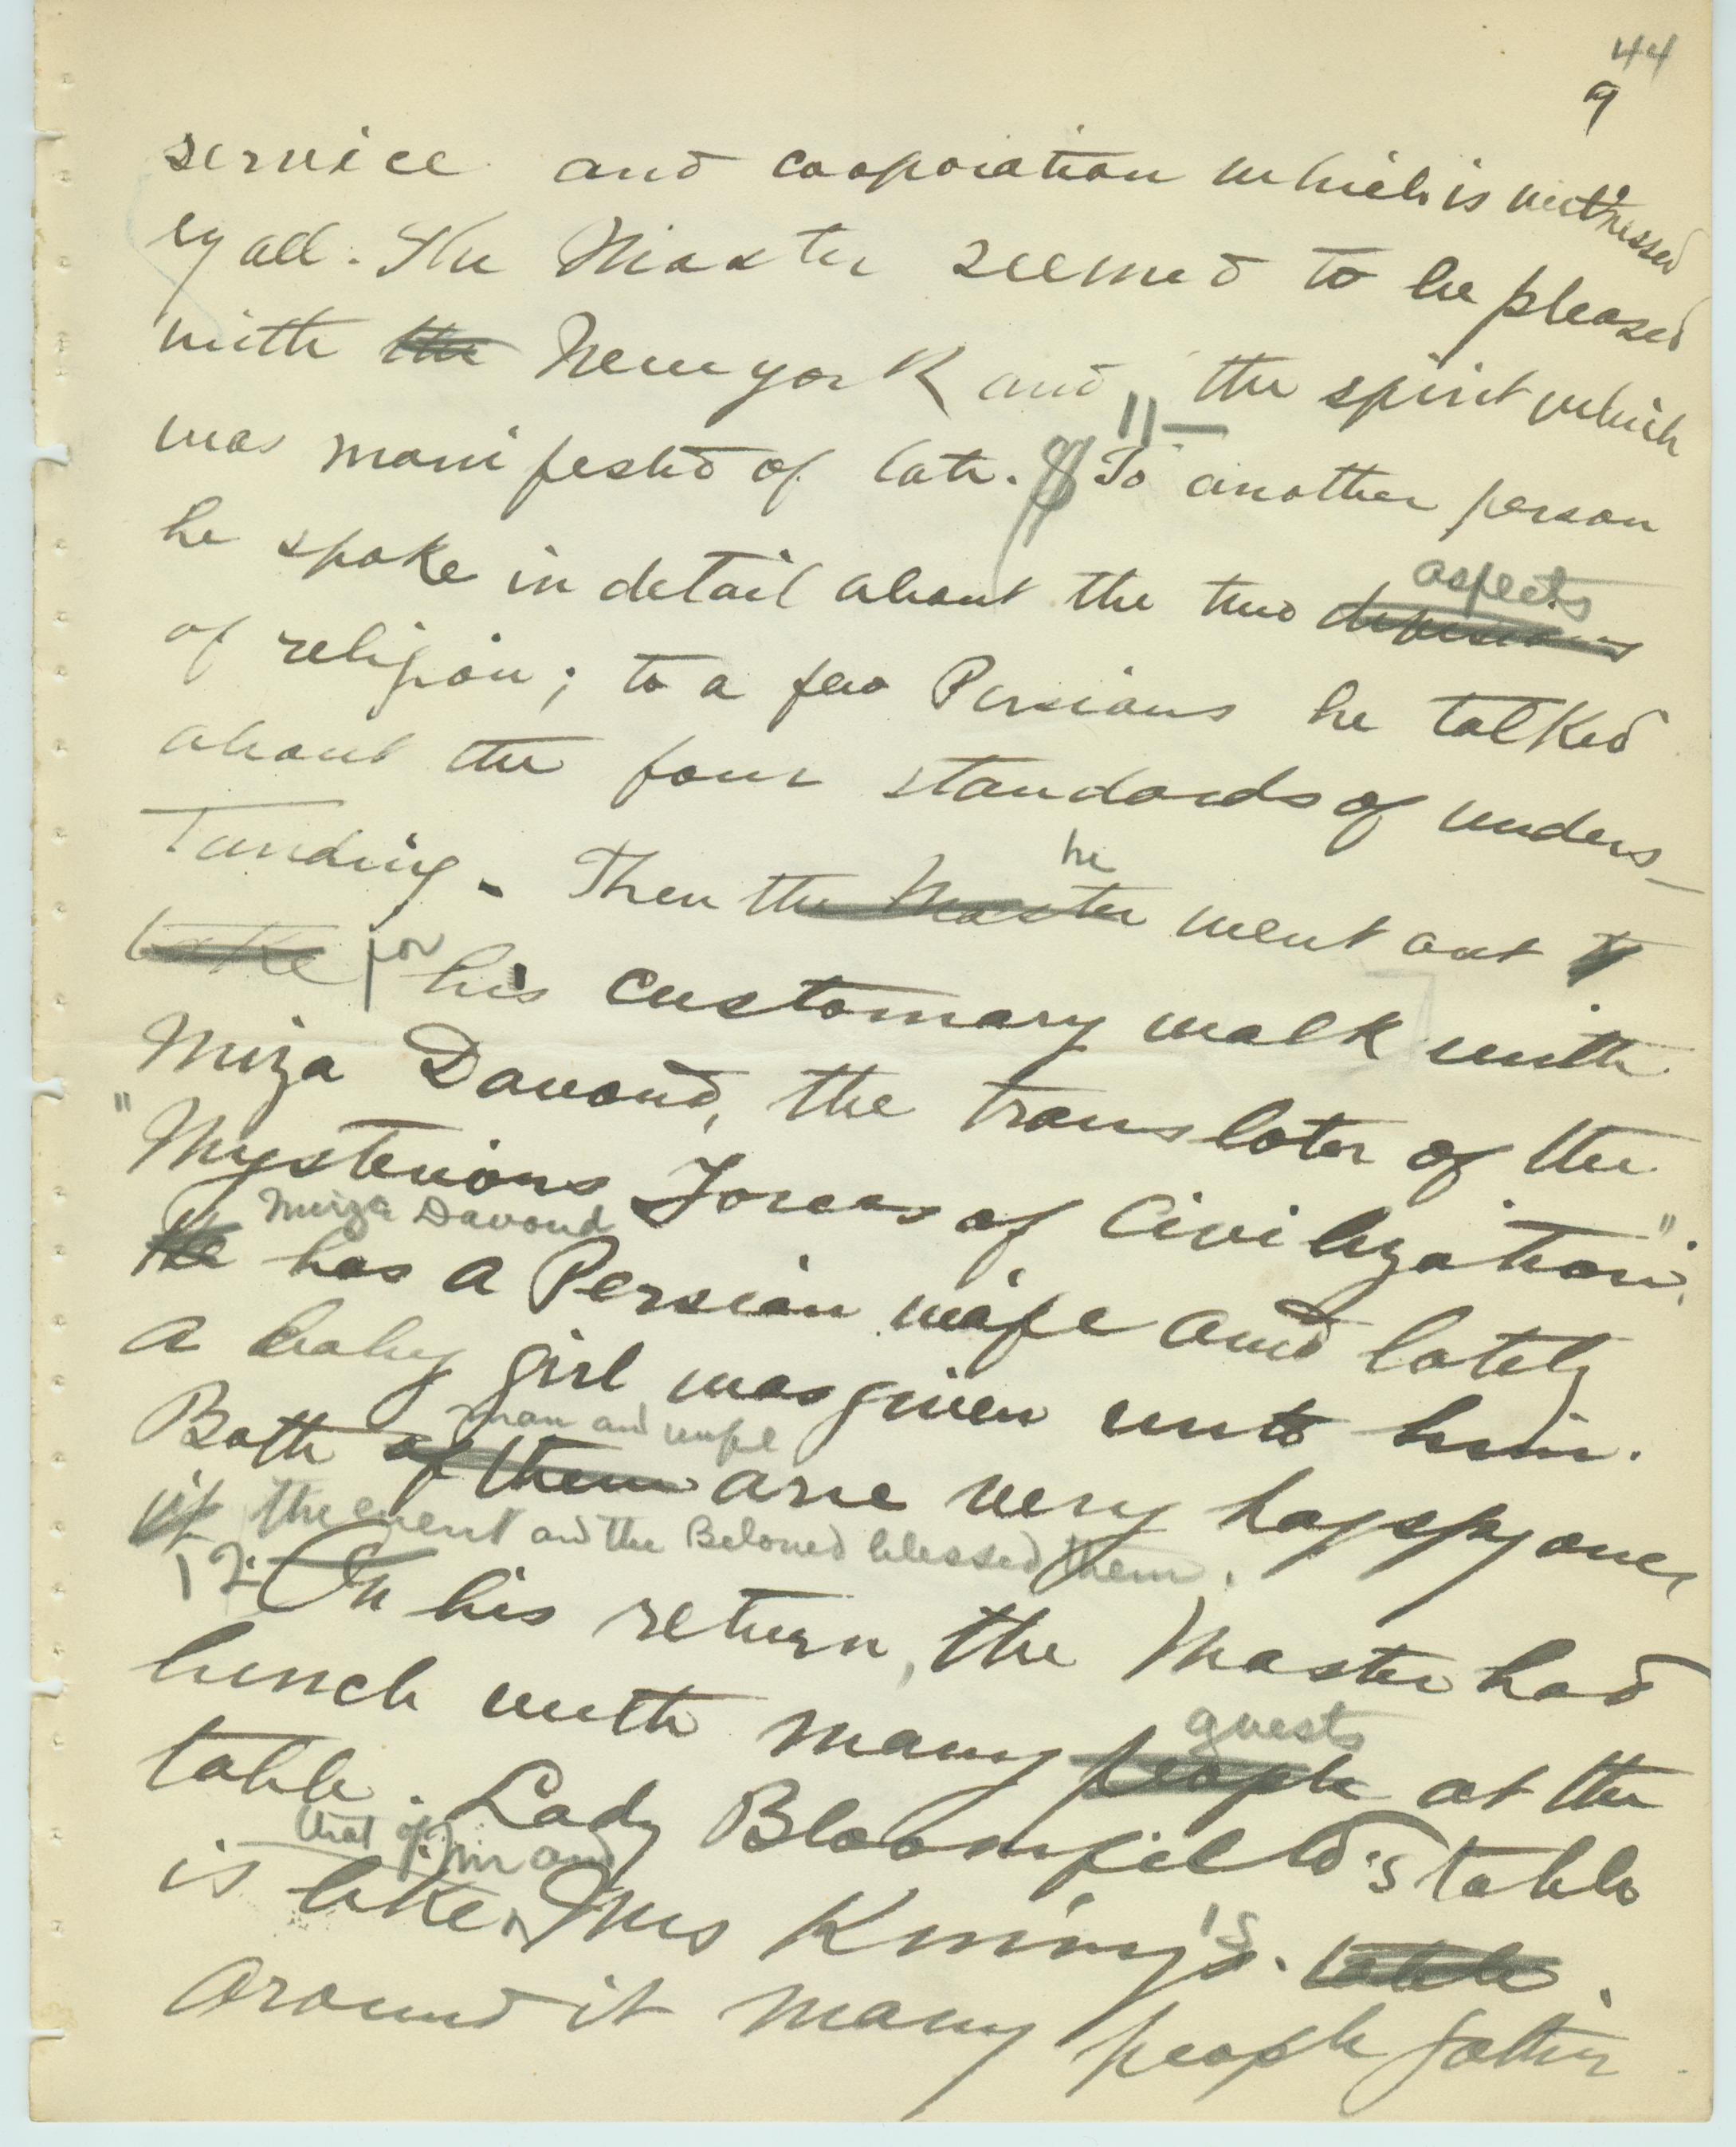 44
9
service and cooporation which is witnessed
by all. The Master seemed to be pleased
with the New york and the spirit which
11 —
was manifested of late. To another person
aspects
he spoke in detail about the two
of religion; to a few Persians he talked
about the four standards of unders-
tanding. Then the Master he went out to
take for his customary walk with
Mirza Davoud, the translater of the
"Mysterious Forces of Civilization".
Mirza Davoud
He has a Persian wife and lately
a baby girl was given unto him.
man and wife
Both of them are very happy over
it the event and the Beloved blessed them.
12. On his return, the Master had
guests
lunch with many people at the
table. Lady Bloomfield's table
that of Mr and
is like Mrs Kinny's. table.
Around it many people gather